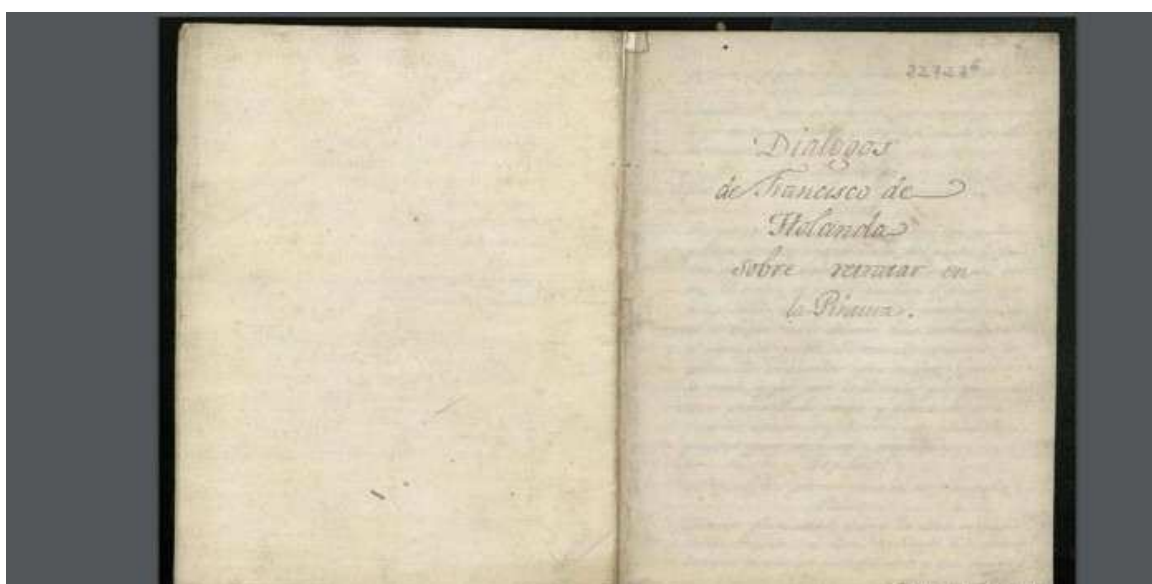 22727⁶
Dialogos
de Francisco de
Holanda
sobre retratar en
la Pintura.